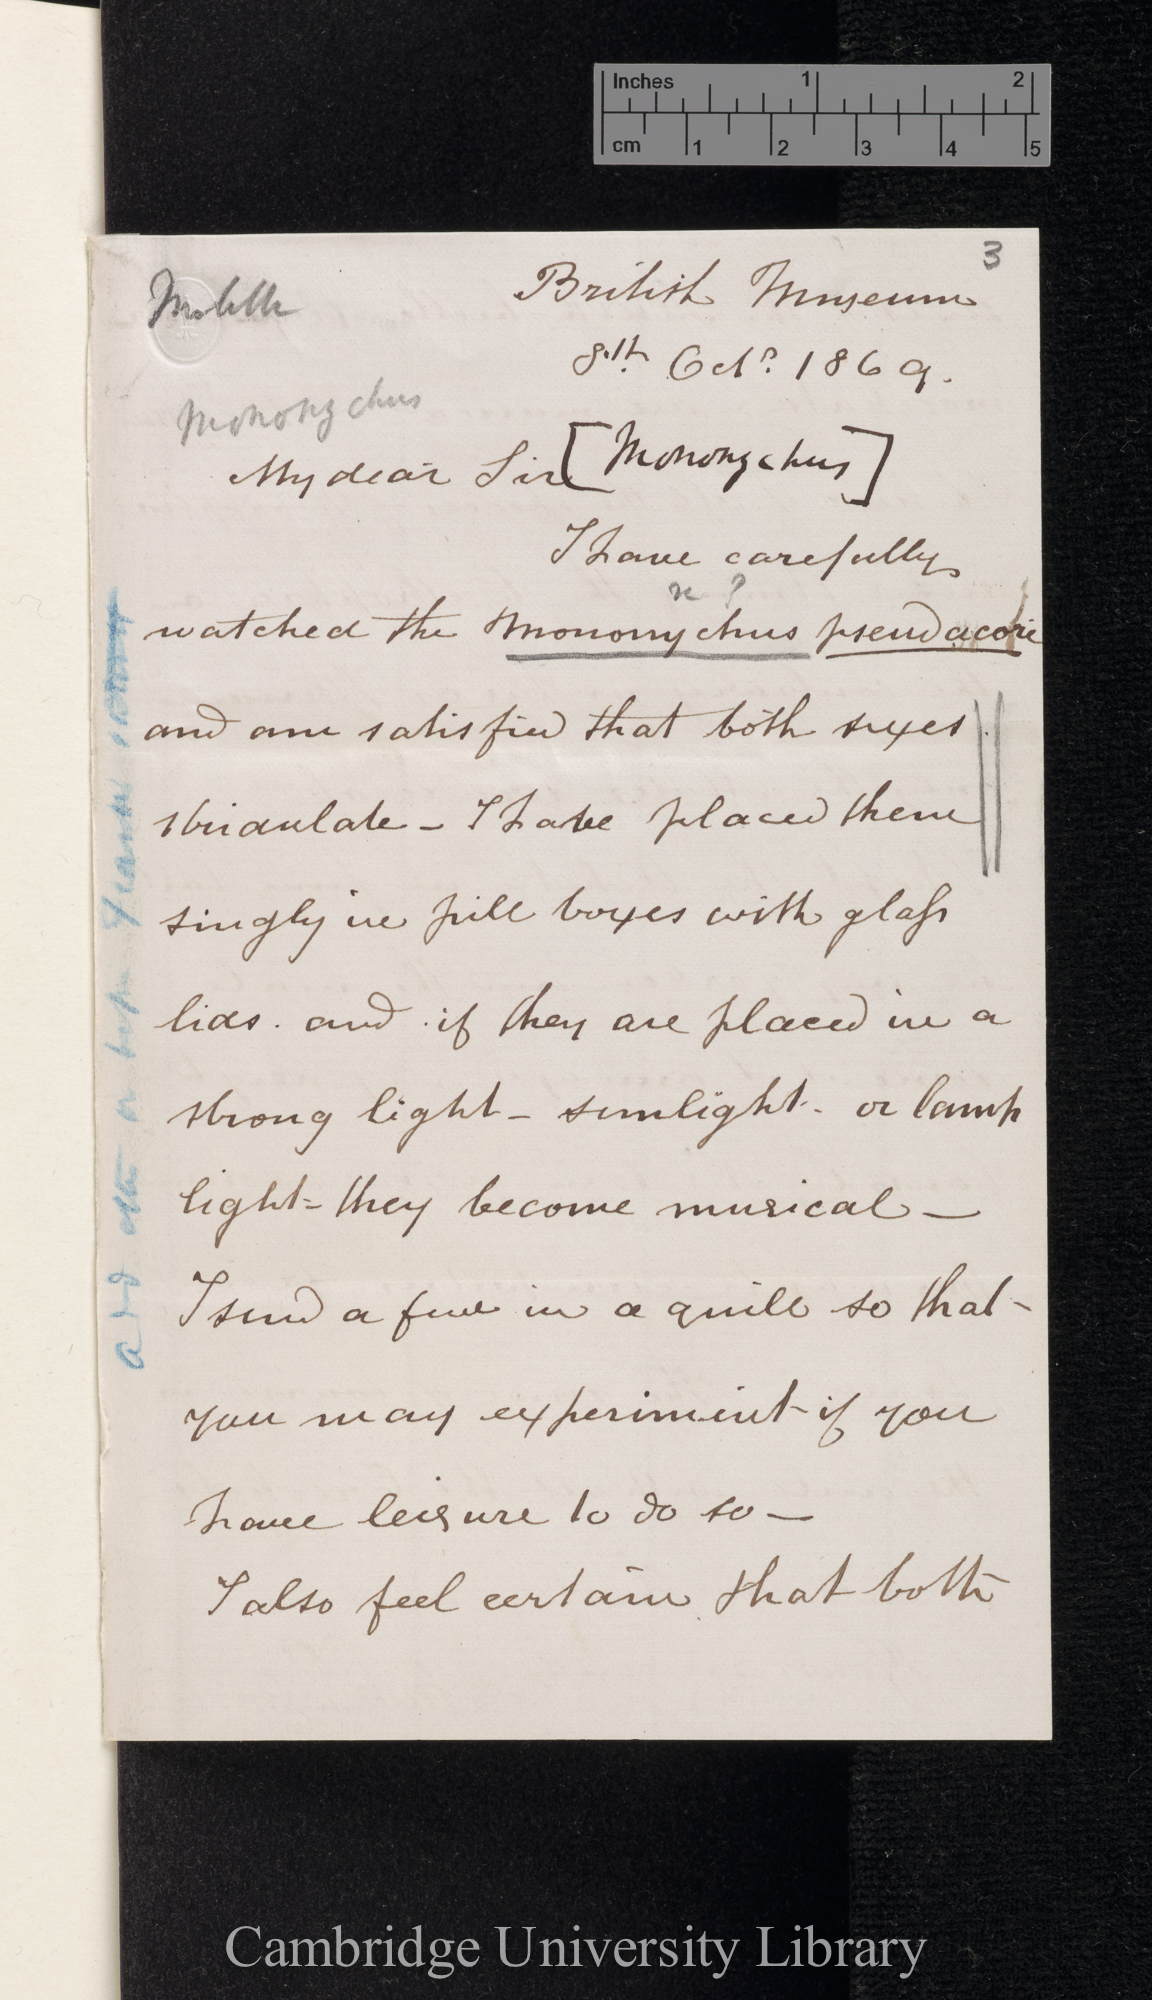 Inches 1 2
cm 1 2 3 4 5
3
British Museum
8th. Octr. 1869.
Mononychus
My dear Sir [Mononychus]
I have carefully
n ?
watched the Mononychus pseudacori
and am satisfied that both sexes
stridulate – I have placed them
singly in pill boxes with glass
lids . and . if they are placed in a
strong light – sunlight . or lamp
light – they become musical –
I send a few in a quill so that –
you may experiment if you
have leisure to do so –
I also feel certain that both
Cambridge University Library